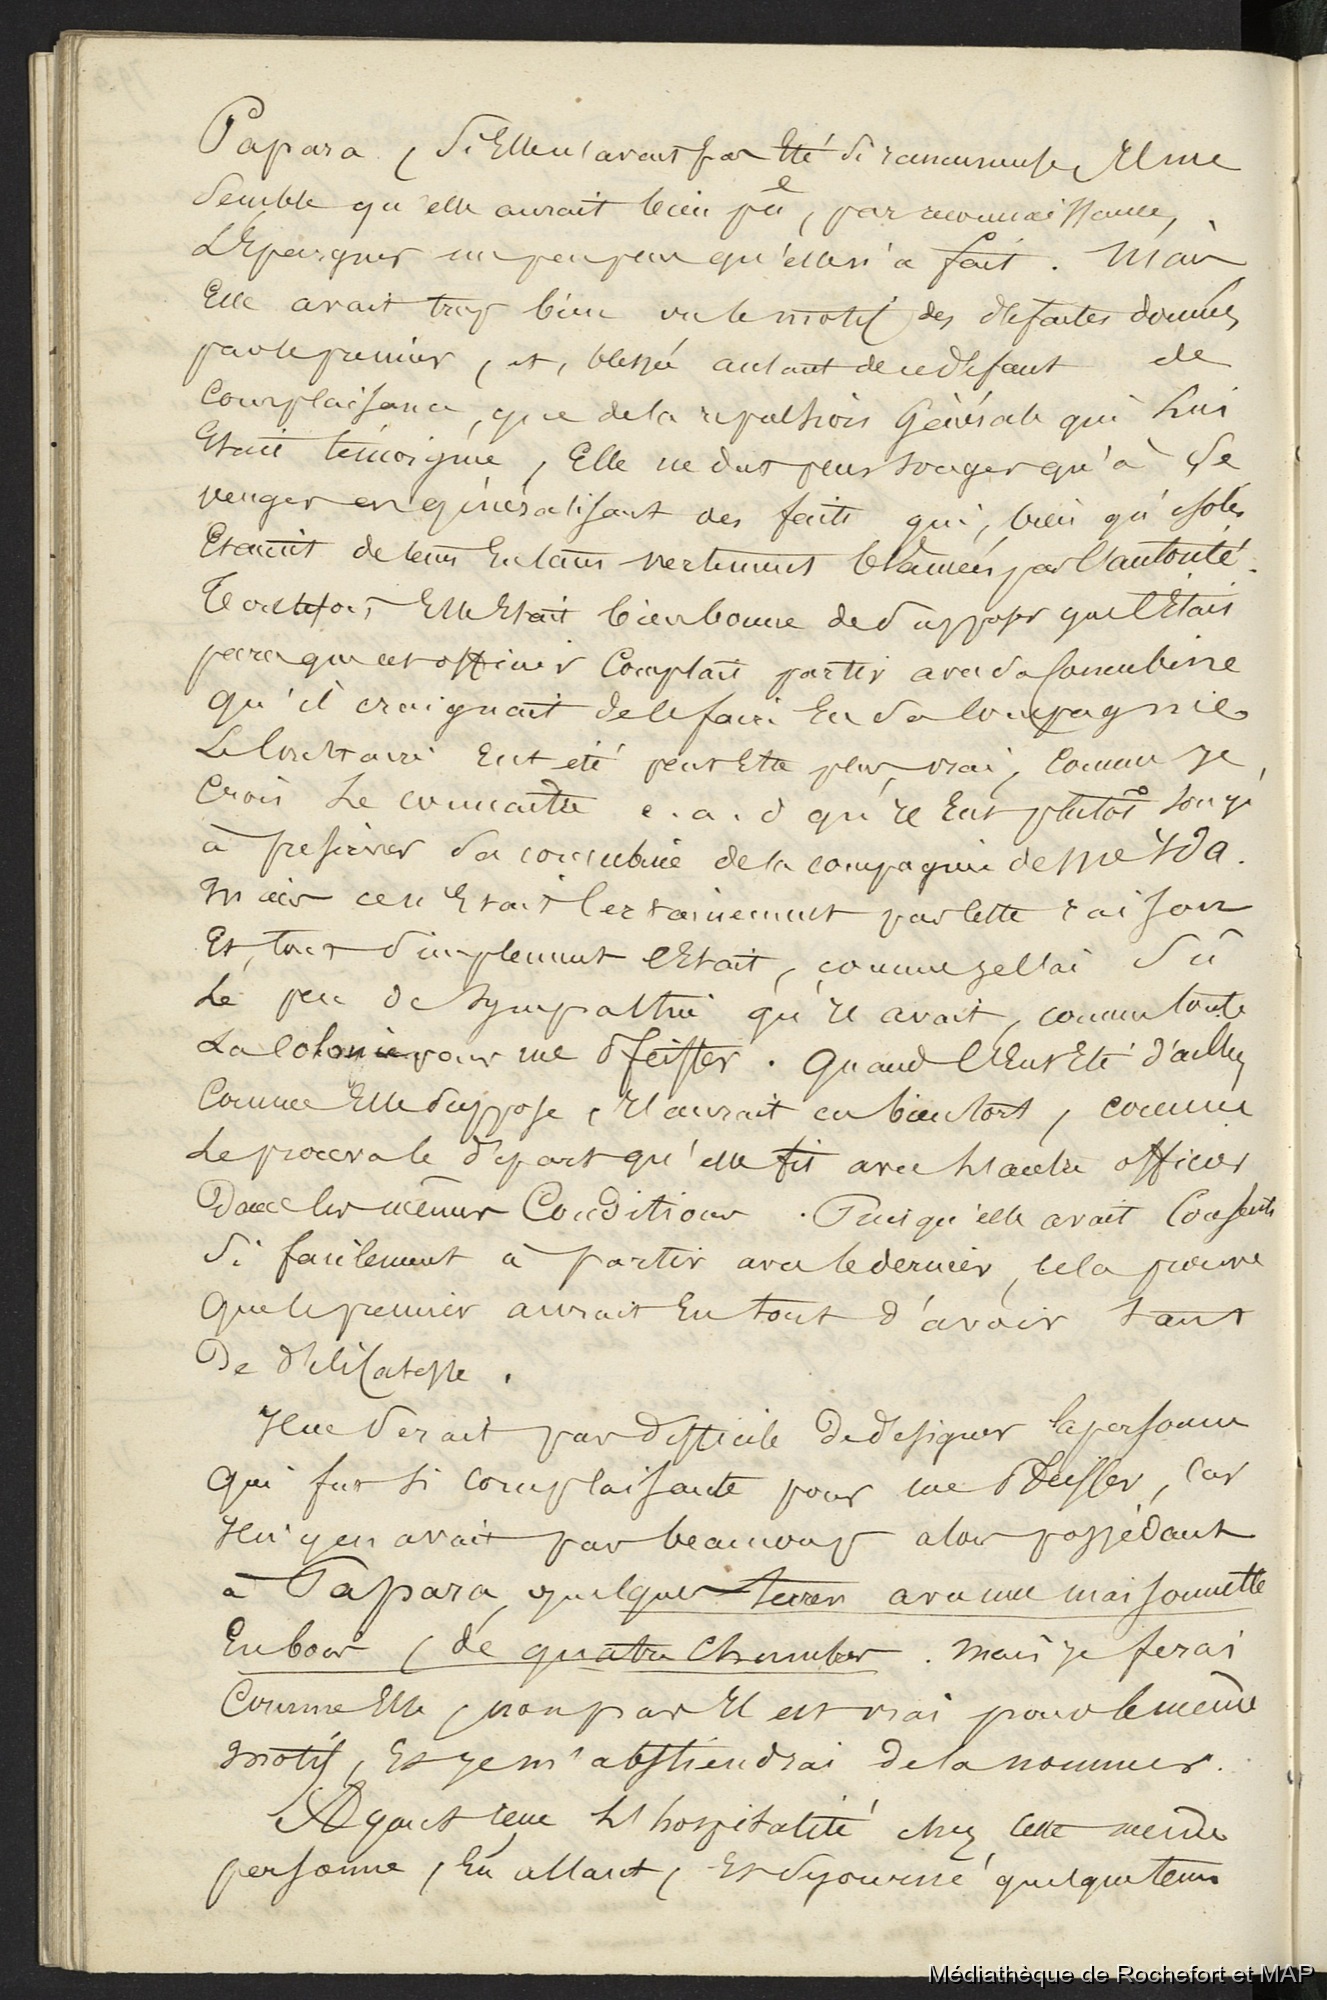 Papara, si Elle n'avait pas Eté si rancuneuse, Il me
semble qu'elle aurait bien pu, par reconnaissance,
L'épargner un peu plus qu'elle n'a fait. Mais
Elle avait trop bien vu le motif des défaites données
par le premier, et, blessée autant de ce défaut de
Complaisance, que de la repulsion générale qui Lui
Etait témoignée, Elle ne dut plus songer qu'à Se
venger en généralisant des faits qui, bien qu'isolés
Etaient de tems En tems vertement blâmés par l'autorité.
Toutefois, Elle Etait bien bonne de supposer que C'Etait
parceque cet officier Comptait partir avec sa Concubine
qu'il craignait de le faire En sa Compagnie.
Le Contraire Eut été peut Etre plus vrai, Comme je
Crois Le connaitre c.a.d qu'il Eut plutôt songé
à preserver sa concubine de la compagnie de Me Ida.
Mais ce n'Etait Certainement pas Cette raison
Et, tout simplement C'Etait, comme je l'ai Sû
Le peu de Sympathie qu'Il avait, comme toute
La Colonie pour me Pfeiffer. Quand C'Eut Eté d'ailleurs
Comme Elle suppose, Il aurait eu bien tort, comme
Le prouva le départ qu'elle fit avec L'autre officier
Dans les mêmes Conditions. Puisqu'elle avait Consenti
Si facilement à partir avec le dernier, Cela prouve
Que le premier aurait Eu tort d'avoir tant
De délicatesse.
Il ne Serait pas difficile De designer la personne
Qui fut si complaisante pour me Pfeiffer, Car
Il n'y en avait pas beaucoup alors possédant
à Papara, quelques terres avec une maisonnette
En bois, de quatre Chambres. Mais je ferai
Comme Elle, non pas Il est vrai pour le même
motif, Et je m'abstiendrai de la nommer.
Ayant reçu L'hospitalité chez Cette même
personne, En allant, Et séjourné quelque tems
Médiathèque de Rochefort et MAP